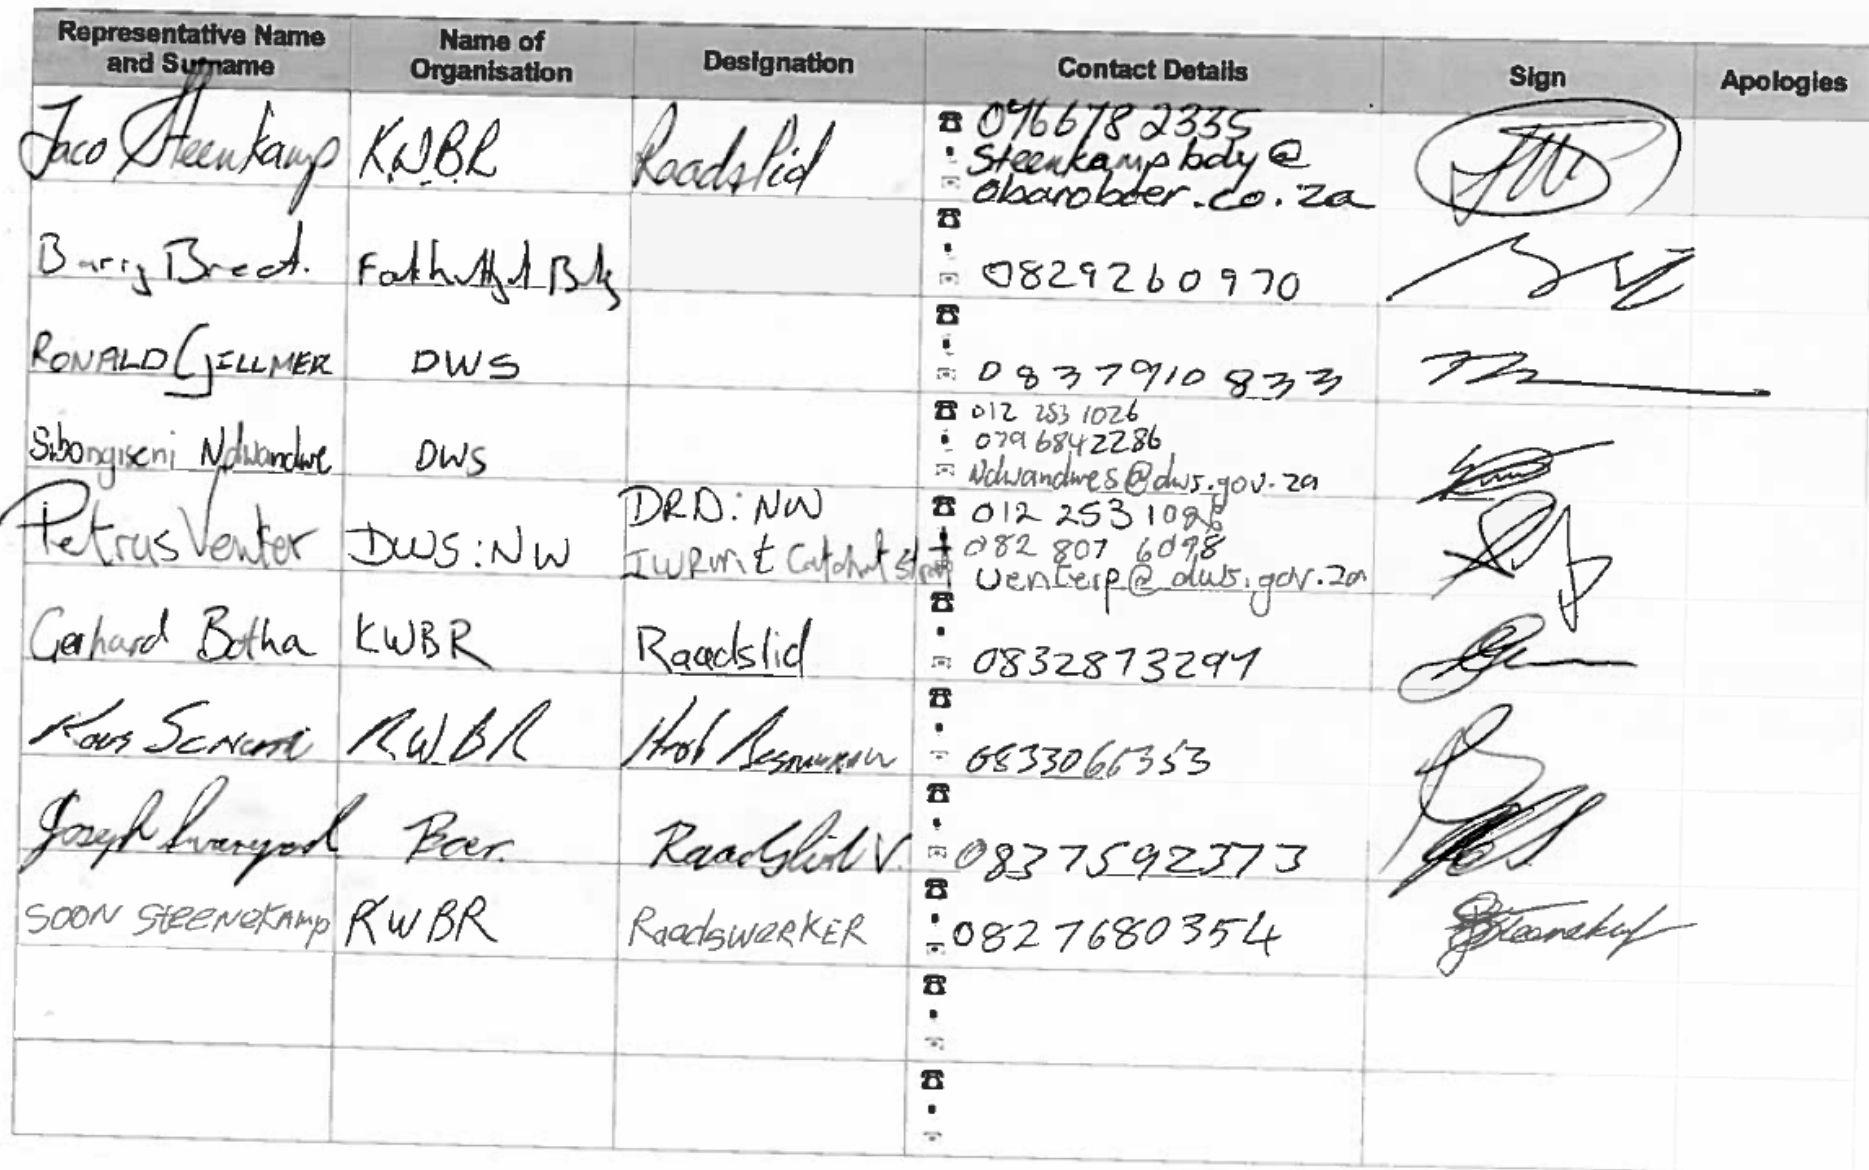 Representative Name and Surname	Name of Organisation	Designation	Contact Details	Sign	Apologies
Jaco Steenkamp	KWBR	Raadslid	0766782335
Steenkamp bdy@
obaroboer.co.za
Barry Bredt.	0829260970
RONALD GILLMER	DWS	0837910833
Sibongiseni Ndwandwe	DWS	012 253 1026
079 6842286
Ndwandwes@dws.gov.za
Petrus Venter	DWS:NW	DRD:NW	012 253 1026
IWRM & Catchmt	082 807 6098
venterp@dws.gov.za
Gerhard Botha	KWBR	Raadslid	0832873297
KWBR	0833066353
Joseph	Boer.	Raadslid V.	0837592373
SOON STEENEKAMP	KWBR	RaadsWERKER	0827680354